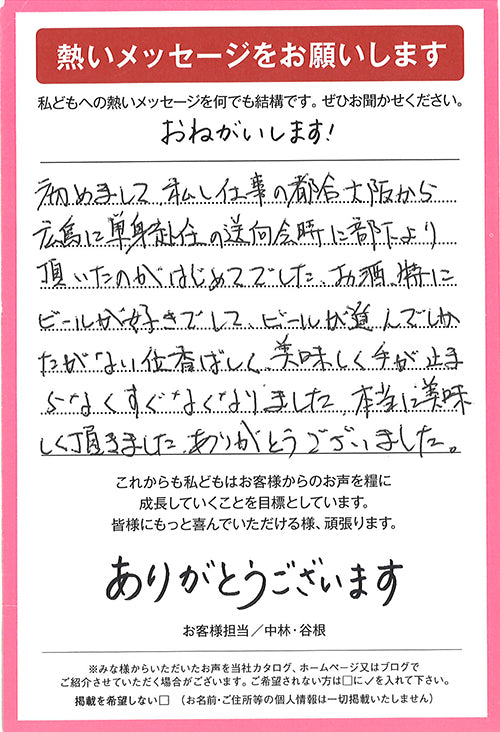 熱いメッセージをお願いします
私どもへの熱いメッセージを何でも結構です。ぜひお聞かせください。
おねがいします!
初めまして、私し仕事の都合大阪から
広島に単身赴任の送向会時に部下より
頂いたのがはじめてでした、お酒、特に
ビールが好きでして、ビールが進んでしか
たがない位香ばしく、美味しく手が止ま
らなくすぐなくなりました、本当に美味
しく頂きました、ありがとうございました。
これからも私どもはお客様からのお声を糧に
成長していくことを目標としています。
皆様にもっと喜んでいただける様、頑張ります。
ありがとうございます
お客様担当／中林・谷根
※みな様からいただいたお声を当社カタログ、ホームページ又はブログで
ご紹介させていただく場合がございます。ご希望されない方は□に✓を入れて下さい。
掲載を希望しない□ （お名前・ご住所等の個人情報は一切掲載いたしません）